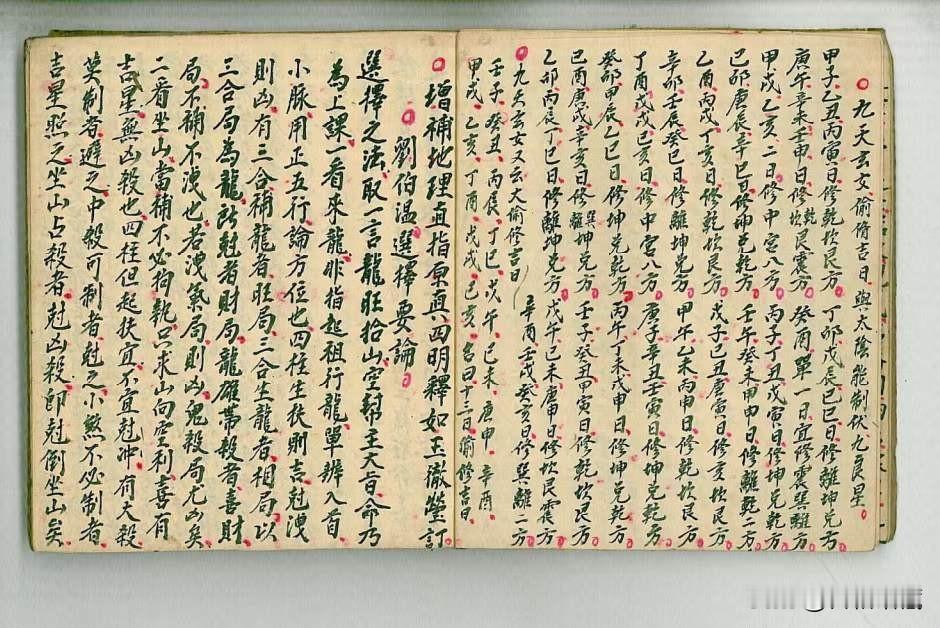 九天玄女偷脩吉日與太陰能制伏九良星
甲子乙丑丙寅日修乾坎艮方 丁卯戊辰己巳日修離坤兑方
庚午辛未壬申日修坎艮震方 癸酉單一日宜修震巽離方
甲戌乙亥二日修中宮八方 丙子丁丑戊寅日修坤兑乾方
己卯庚辰辛巳日修坤兑乾方 壬午癸未甲申日修離乾二方
乙酉丙戌丁亥日修乾坎方 戊子己丑庚寅日修亥坎方
辛卯壬辰癸巳日修離坤方 甲午乙未丙申日修乾坎艮方
丁酉戊戌己亥日修中宮八方 庚子辛丑壬寅日修坤兑乾方
癸卯甲辰乙巳日修坤兑乾方 丙午丁未戊申日修坤兑乾方
己酉庚戌辛亥日修巽坤兑方 壬子癸丑甲寅日修乾坎艮方
乙卯丙辰丁巳日修離坤兑方 戊午己未庚申日修坎艮震方
九天玄女又云天偷修吉日 辛酉壬戌癸亥日修巽離二方
壬子癸丑丙辰丁巳戊午己未庚申辛酉
甲戌乙亥丁酉戊戌己亥名曰十三日偷修吉日
增補地理直指原真四明釋如玉徹瑩訂
劉伯温選擇要論
選擇之法取一言龍旺拾山空幫主大吉命乃
為上課一看來龍非指起祖行龍單辨入首
小脉用正五行論方位也四柱生扶則吉尅洩
則凶有三合補龍者旺局三合生龍者相局以
三合局為龍所尅者財局龍雄帶殺者喜財
局不補不洩也若洩氣局則凶鬼殺局尤凶矣
二看坐山當補不必拘執只求山向空利喜有
吉星無凶殺也四柱但起扶宜不宜尅冲有大殺
筭制者避之中殺可制者尅之小煞不必制者
吉星照之坐山占殺者尅凶殺即尅倒坐山矣